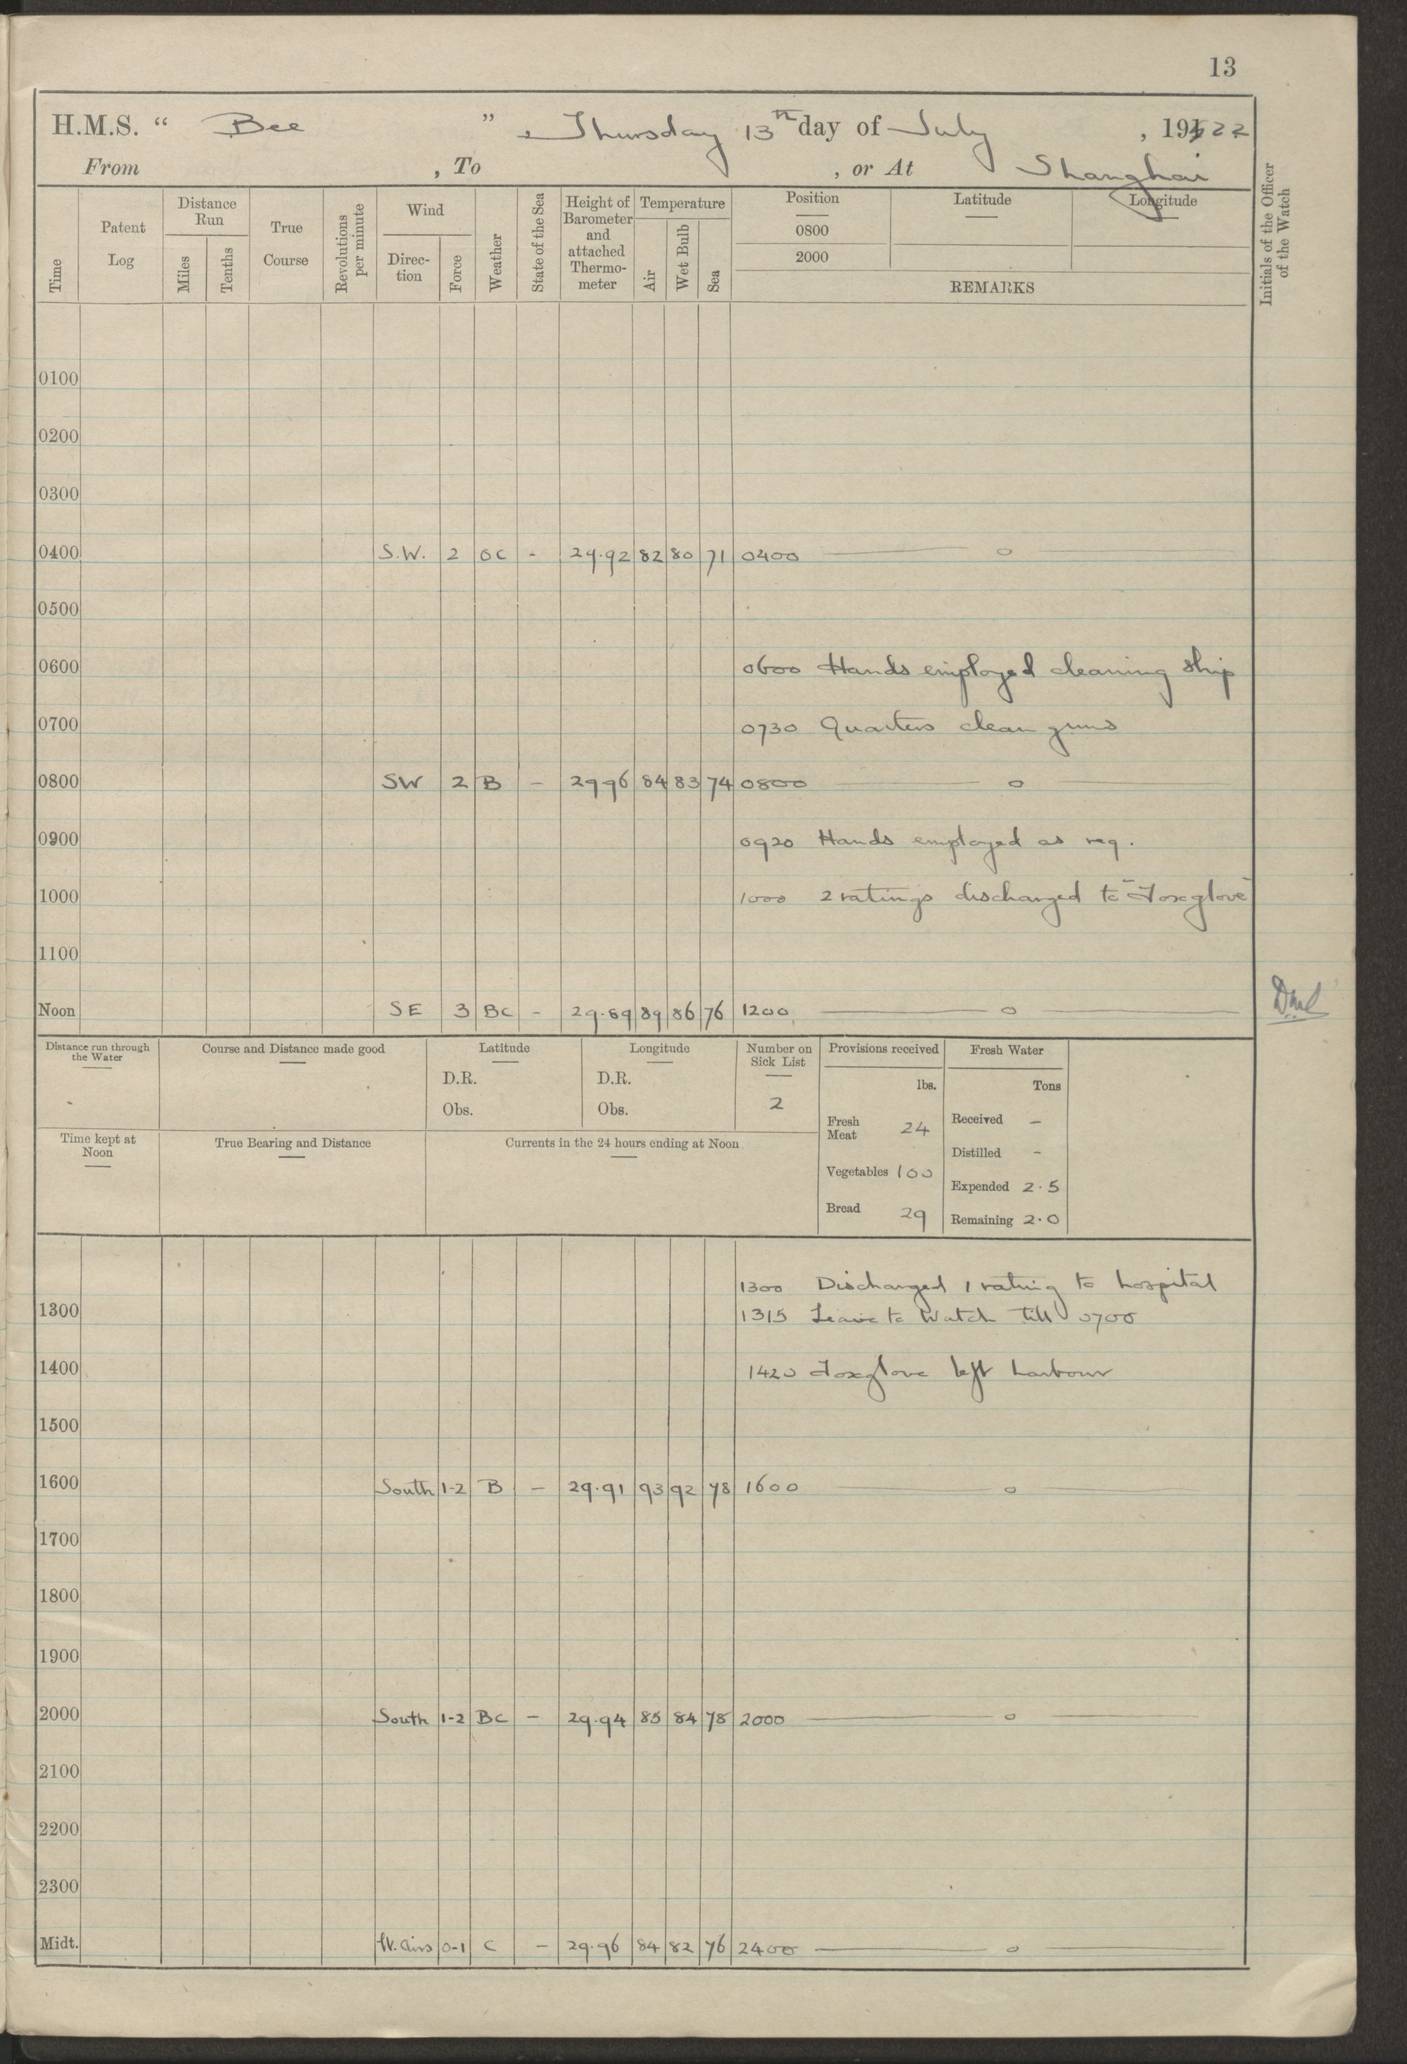 13
H.M.S. “ Bee ” , Thursday 13th day of July , 1922
From , To , or At Shanghai
Time
Patent Log
Distance Run
Miles
Tenths
True Course
Revolutions per minute
Wind
Direction
Force
Weather
State of the Sea
Height of Barometer and attached Thermometer
Temperature
Air
Wet Bulb
Sea
Position
Latitude
Longitude
0800
2000
REMARKS
Initials of the Officer of the Watch
0100
0200
0300
0400 S.W. 2 OC - 29.92 82 80 71 0400 —— o
0500
0600 0600 Hands employed cleaning ship
0700 0730 Quarters clean guns
0800 SW 2 B — 2996 84 83 74 0800 —— o ——
0900 0920 Hands employed as req.
1000 1000 2 ratings discharged to "Foxglove"
1100
Noon SE 3 BC - 29.89 89 86 76 1200 —— o ——
Distance run through the Water
Course and Distance made good
Latitude
D.R.
Obs.
Longitude
D.R.
Obs.
Number on Sick List
2
Provisions received
lbs.
Fresh Meat 24
Vegetables 100
Bread 29
Fresh Water
Tons
Received —
Distilled -
Expended 2.5
Remaining 2.0
Time kept at Noon
True Bearing and Distance
Currents in the 24 hours ending at Noon
1300 Discharged 1 rating to hospital
1300 1315 Leave to Watch till 0700
1400 1420 Foxglove left harbour
1500
1600 South 1-2 B — 29.91 93 92 78 1600 —— o ——
1700
1800
1900
2000 South 1-2 BC — 29.94 85 84 78 2000 —— o ——
2100
2200
2300
Midt. lt. airs 0-1 C — 29.96 84 82 76 2400 —— o ——